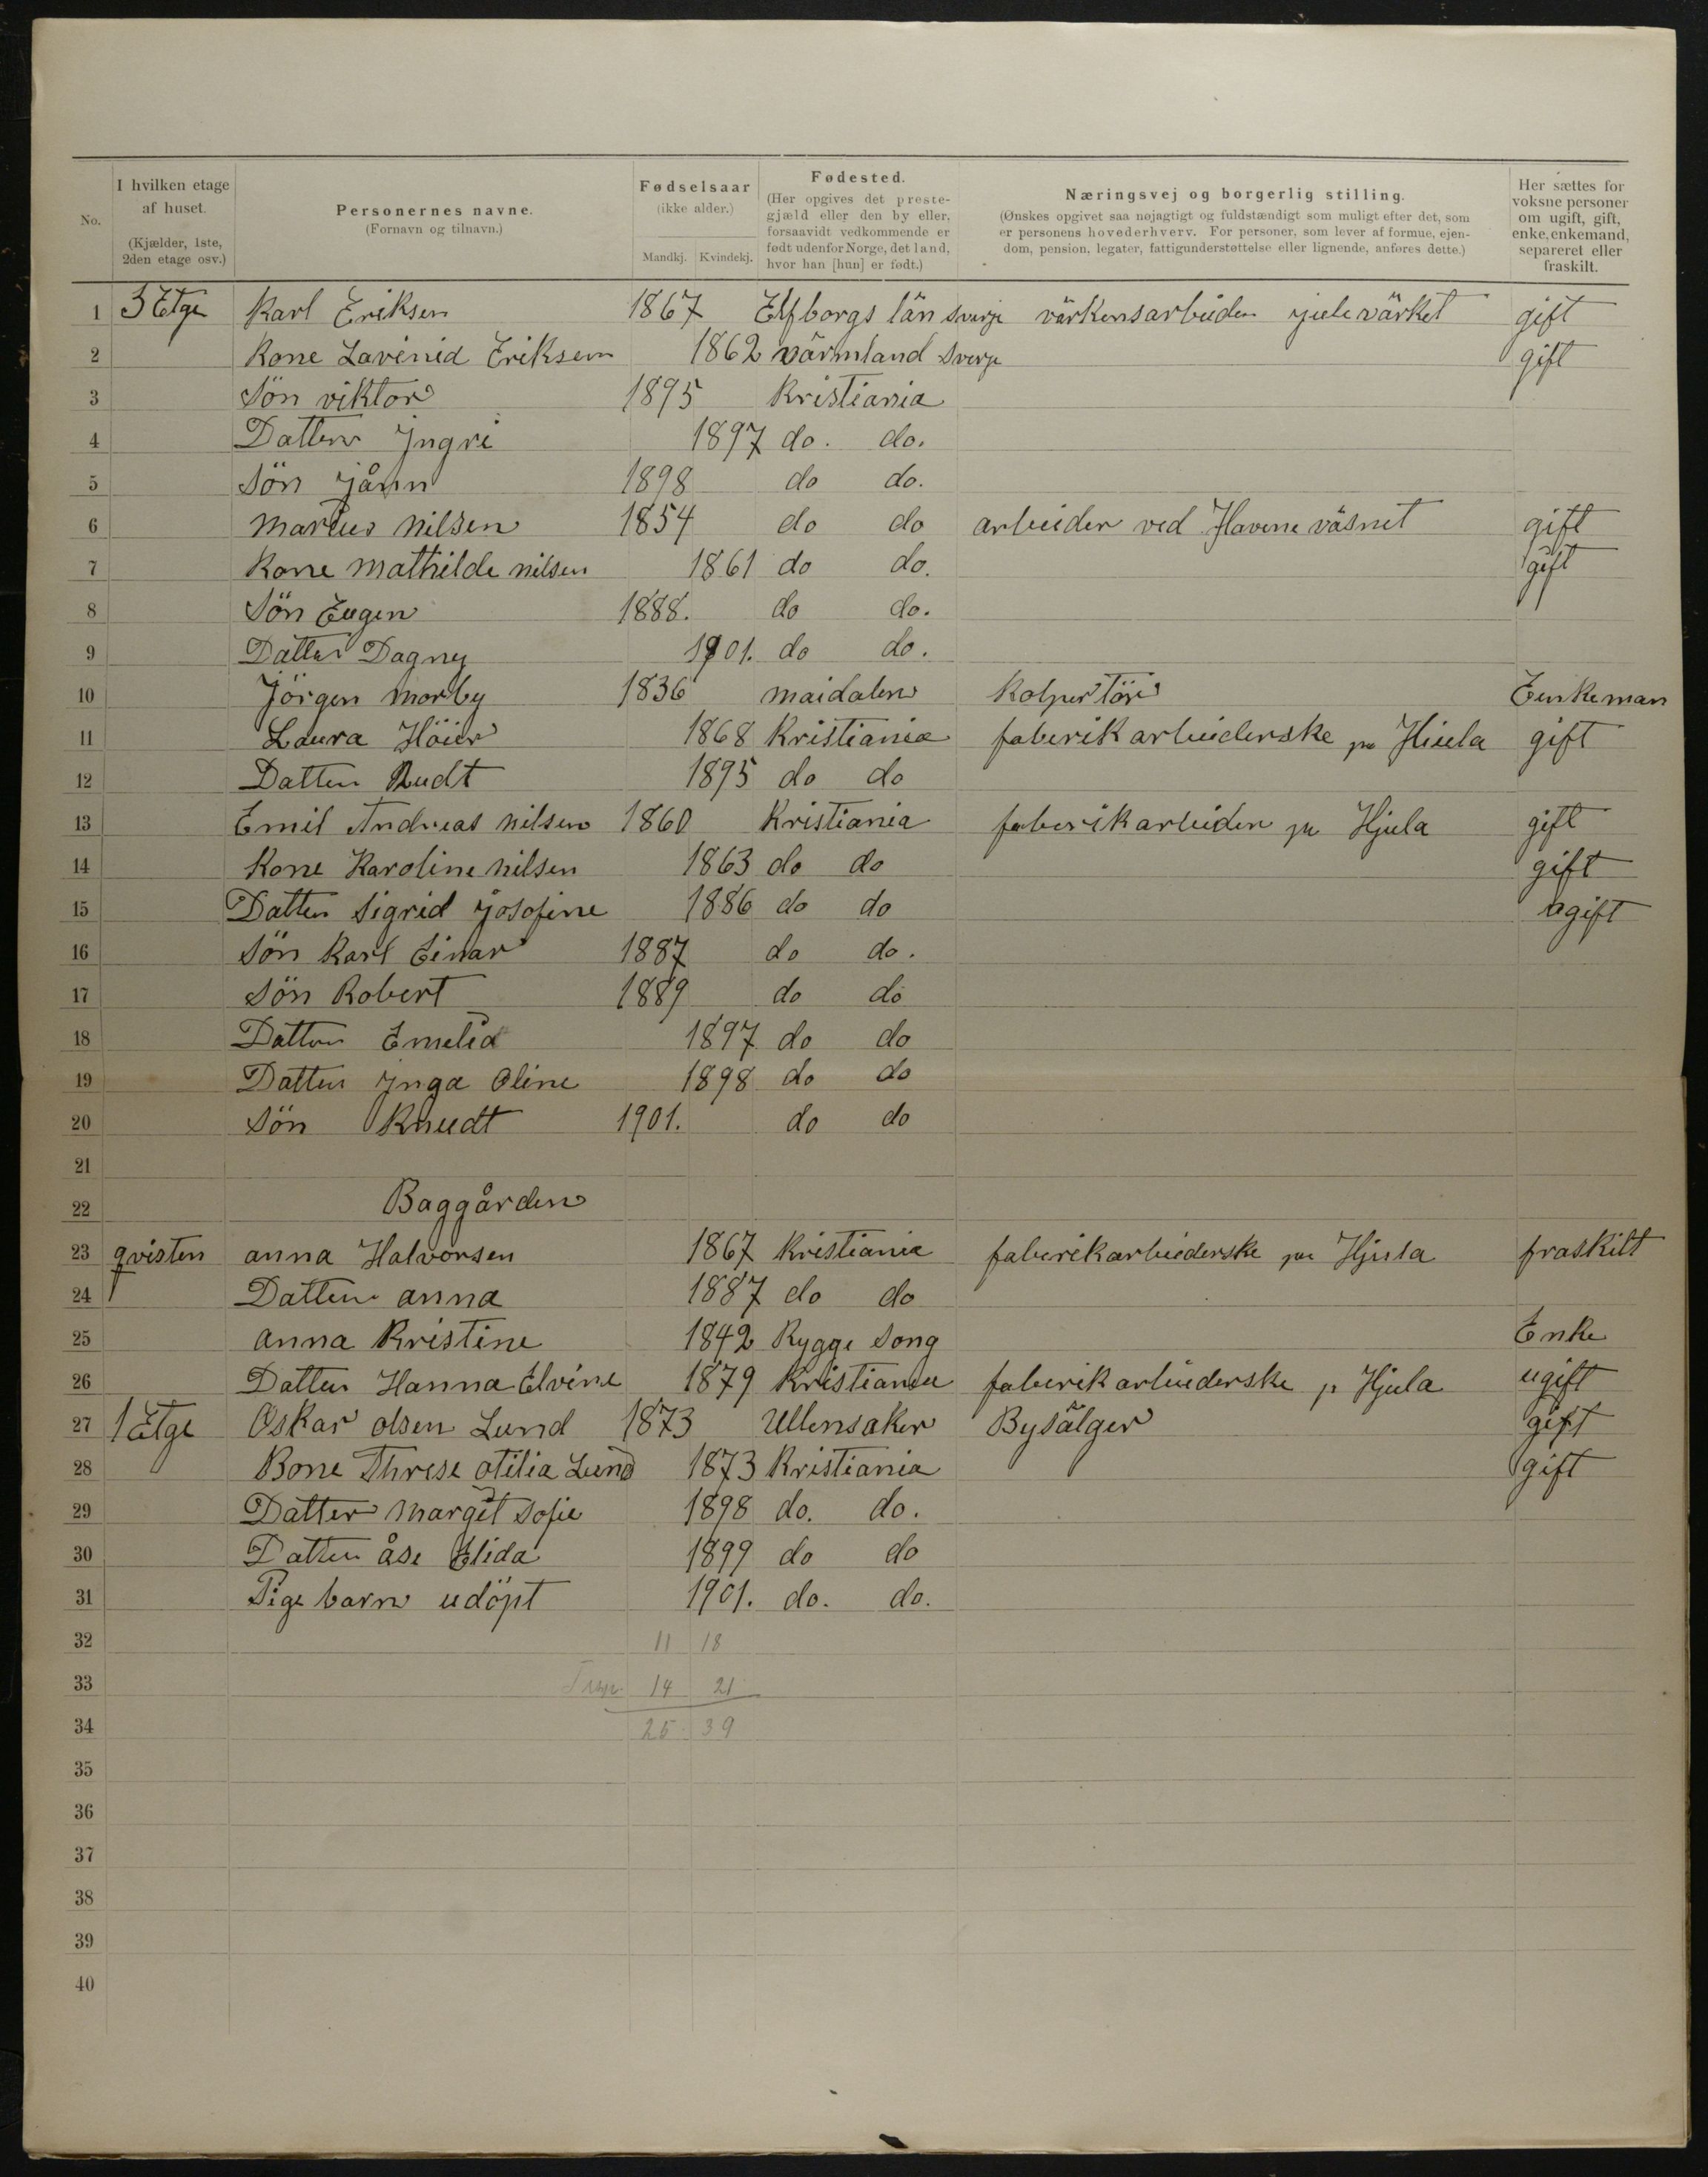 No.
I hvilken etage af huset. (Kjælder, 1ste, 2den etage osv.)
Personernes navne. (Fornavn og tilnavn.)
Fødselsaar (ikke alder.) Mandkj. Kvindekj.
Fødested. (Her opgives det prestegjæld eller den by eller, forsaavidt vedkommende er født udenfor Norge, det land, hvor han [hun] er født.)
Næringsvej og borgerlig stilling. (Ønskes opgivet saa nøjagtigt og fuldstændigt som muligt efter det, som er personens hovederhverv. For personer, som lever af formue, ejendom, pension, legater, fattigunderstøttelse eller lignende, anføres dette.)
Her sættes for voksne personer om ugift, gift, enke, enkemand, separeret eller fraskilt.
1 3 Etge Karl Eriksen 1867 Elfborgs län Sverje värkensarbeider julevärket gift
2 Kone Lavinid Eriksen 1862 värmland Sverje gift
3 Sön viktor 1895 Kristiania
4 Datter Jngri 1897 do. do.
5 Sön Jånn 1898 do do.
6 Marius Nilsen 1854 do do arbeider ved Havene väsnet gift
7 Kone Mathilde Nilsen 1861 do do. gift
8 Sön Eugen 1888. do do.
9 Datter Dagny 1901. do do.
10 Jörgen Morby 1836 maidalen Kolpertör Eenkeman
11 Laura Höier 1868 Kristiania faberikarbeiderske pa Hiula gift
12 Datter Rudt 1895 do do
13 Emil Andreas Nilsen 1860 Kristiania faberikarbeider pa Hjula gift
14 Kone Karoline Nilsen 1863 do do gift
15 Datter Sigrid Josofine 1886 do do ugift
16 Sön Karl Einar 1887 do do.
17 Sön Robert 1889 do do
18 Datter Emelia 1897 do do
19 Datter Jnga Oline 1898 do do
20 Sön Knudt 1901. do do
21
22 Baggården
23 qvisten anna Halvorsen 1867 Kristiania faberikarbeiderske pa Hjula fraskilt
24 Datter anna 1887 do do
25 anna Kristine 1842 Rygge Song Enke
26 Datter Hanna Elvine 1879 Kristiania faberikarbeiderske p Hjula ugift
27 1 Etge Oskar olsen Lund 1873 Ullensaker Bysälger gift
28 Kone Threse otilia Lund 1873 Kristiania gift
29 Datter Margit Sofie 1898 do. do.
30 Datter åse Elida 1899 do do
31 Pige barn udöpt 1901. do. do.
32 11 18
33 14 21
34 25 39
35
36
37
38
39
40